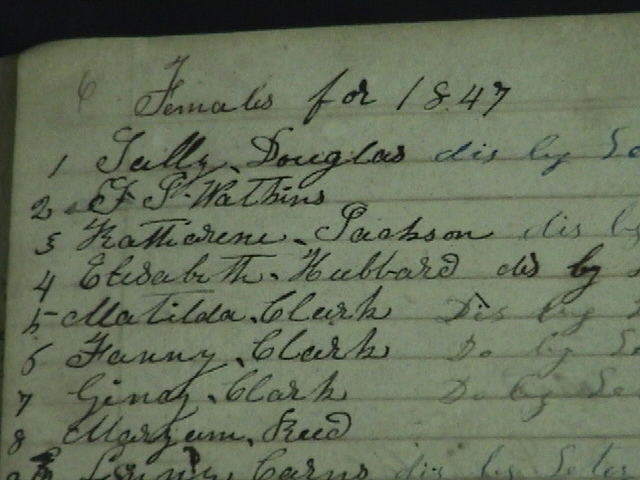 6 Females for 1847
1 Sally Douglas dis by
2 Watkins
3 Kattiarene Jackson dis by
4 Elisabeth Hubbard dis by
5 Matilda Clark Dis by
6 Fanny Clark Do by
7 Gincy Clark Do by
8 Maryum Reed
Carns dis by Leter